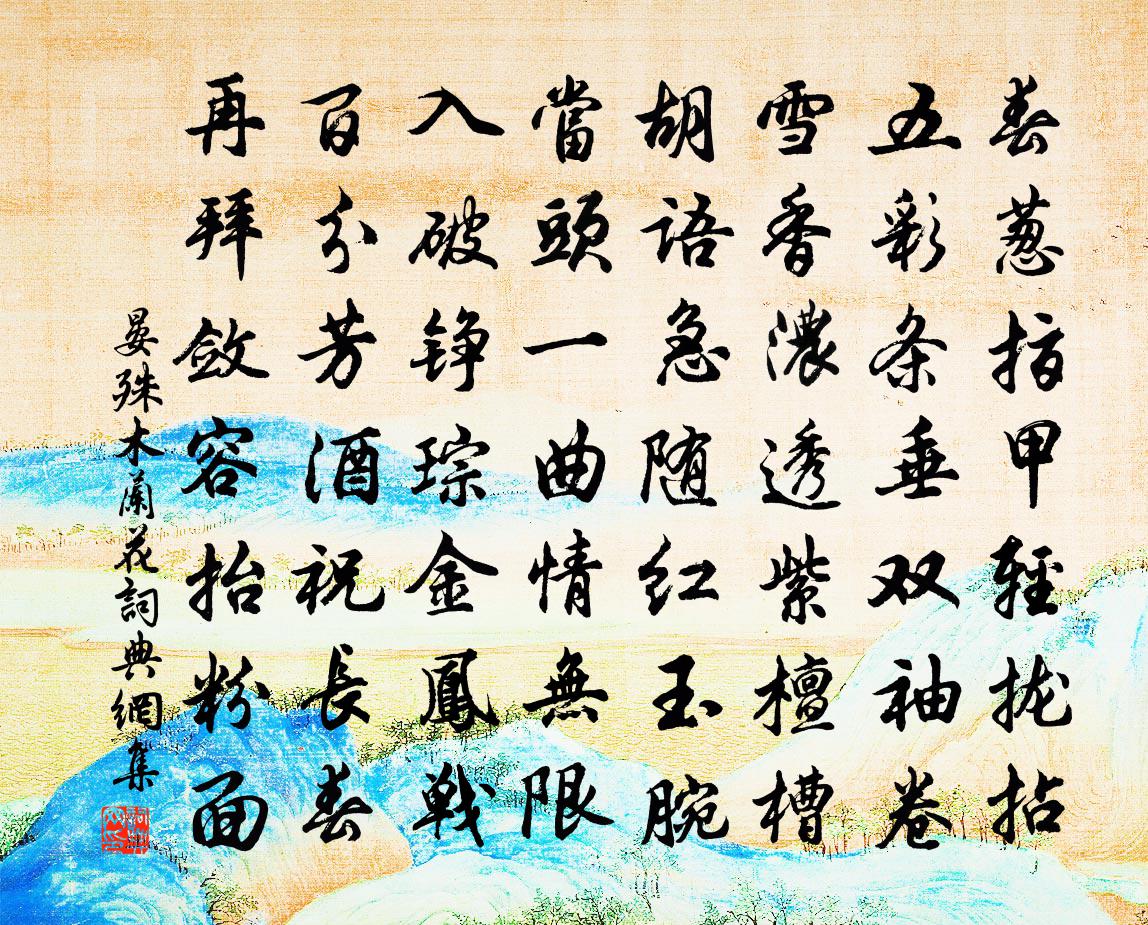 春葱指甲轻拢拈
五彩条垂双袖卷
雪香濃透紫檀槽
胡语急随红玉腕
當頭一曲情無限
入破铮琮金鳳戰
百分芳酒祝長春
再拜敛容抬粉面
晏殊木蘭花詞典網集